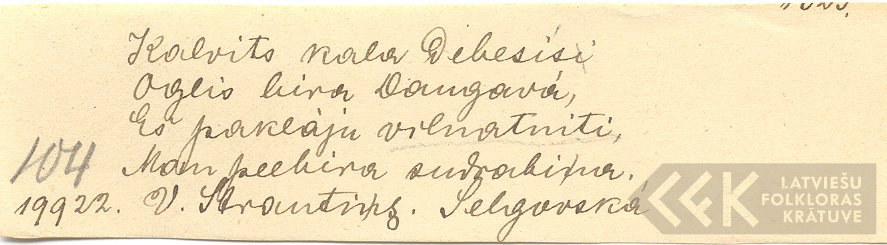 1823.
Kalvits kala Debesīsi
Oglis bira Daugavá,
Es paklāju vilnatnīti,
104 Man peebira sudrabina.
19922. V. Strautiņš. Selgovská
LATVIEŠU
FOLKLORAS
KRĀTUVE